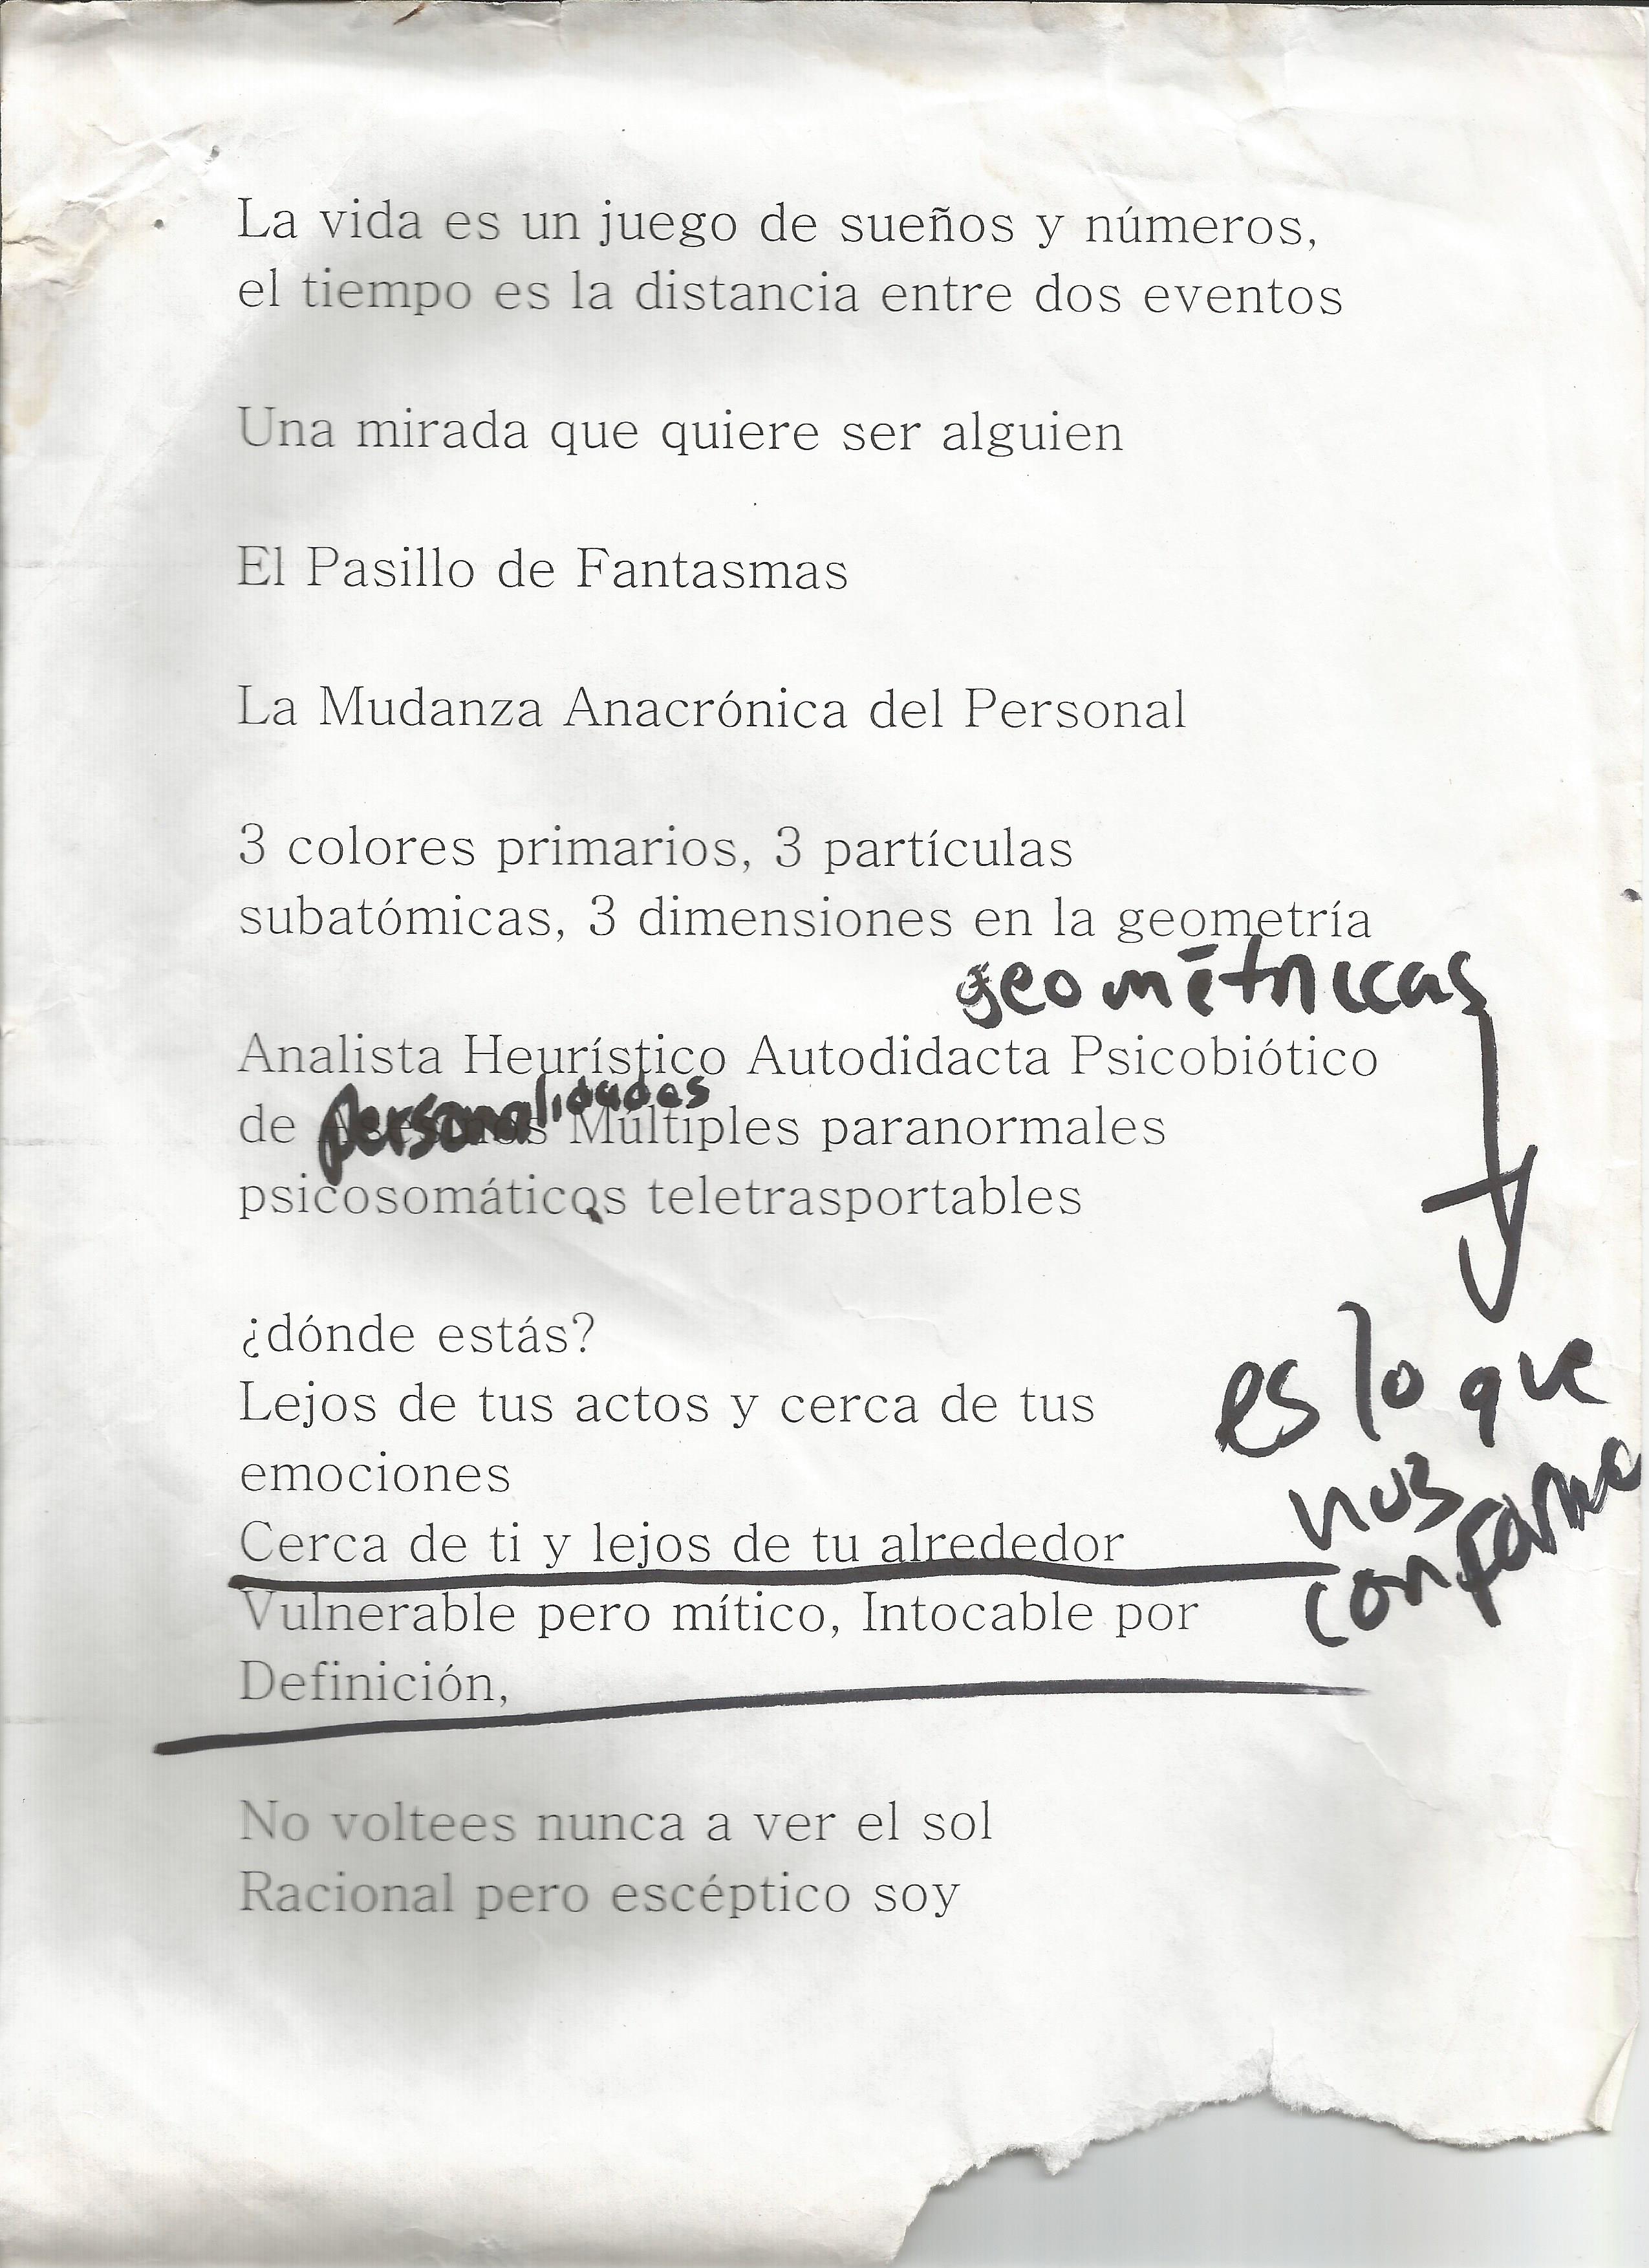 La vida es un juego de sueños y números,
el tiempo es la distancia entre dos eventos
Una mirada que quiere ser alguien
El Pasillo de Fantasmas
La Mudanza Anacrónica del Personal
3 colores primarios, 3 partículas
subatómicas, 3 dimensiones en la geometría
geométricas
Analista Heurístico Autodidacta Psicobiótico
personalidades
de Múltiples paranormales
psicosomáticos teletrasportables
¿dónde estás?
Lejos de tus actos y cerca de tus
emociones
Cerca de ti y lejos de tu alrededor
Vulnerable pero mítico, Intocable por
Definición,
es lo que
nos
No voltees nunca a ver el sol
Racional pero escéptico soy